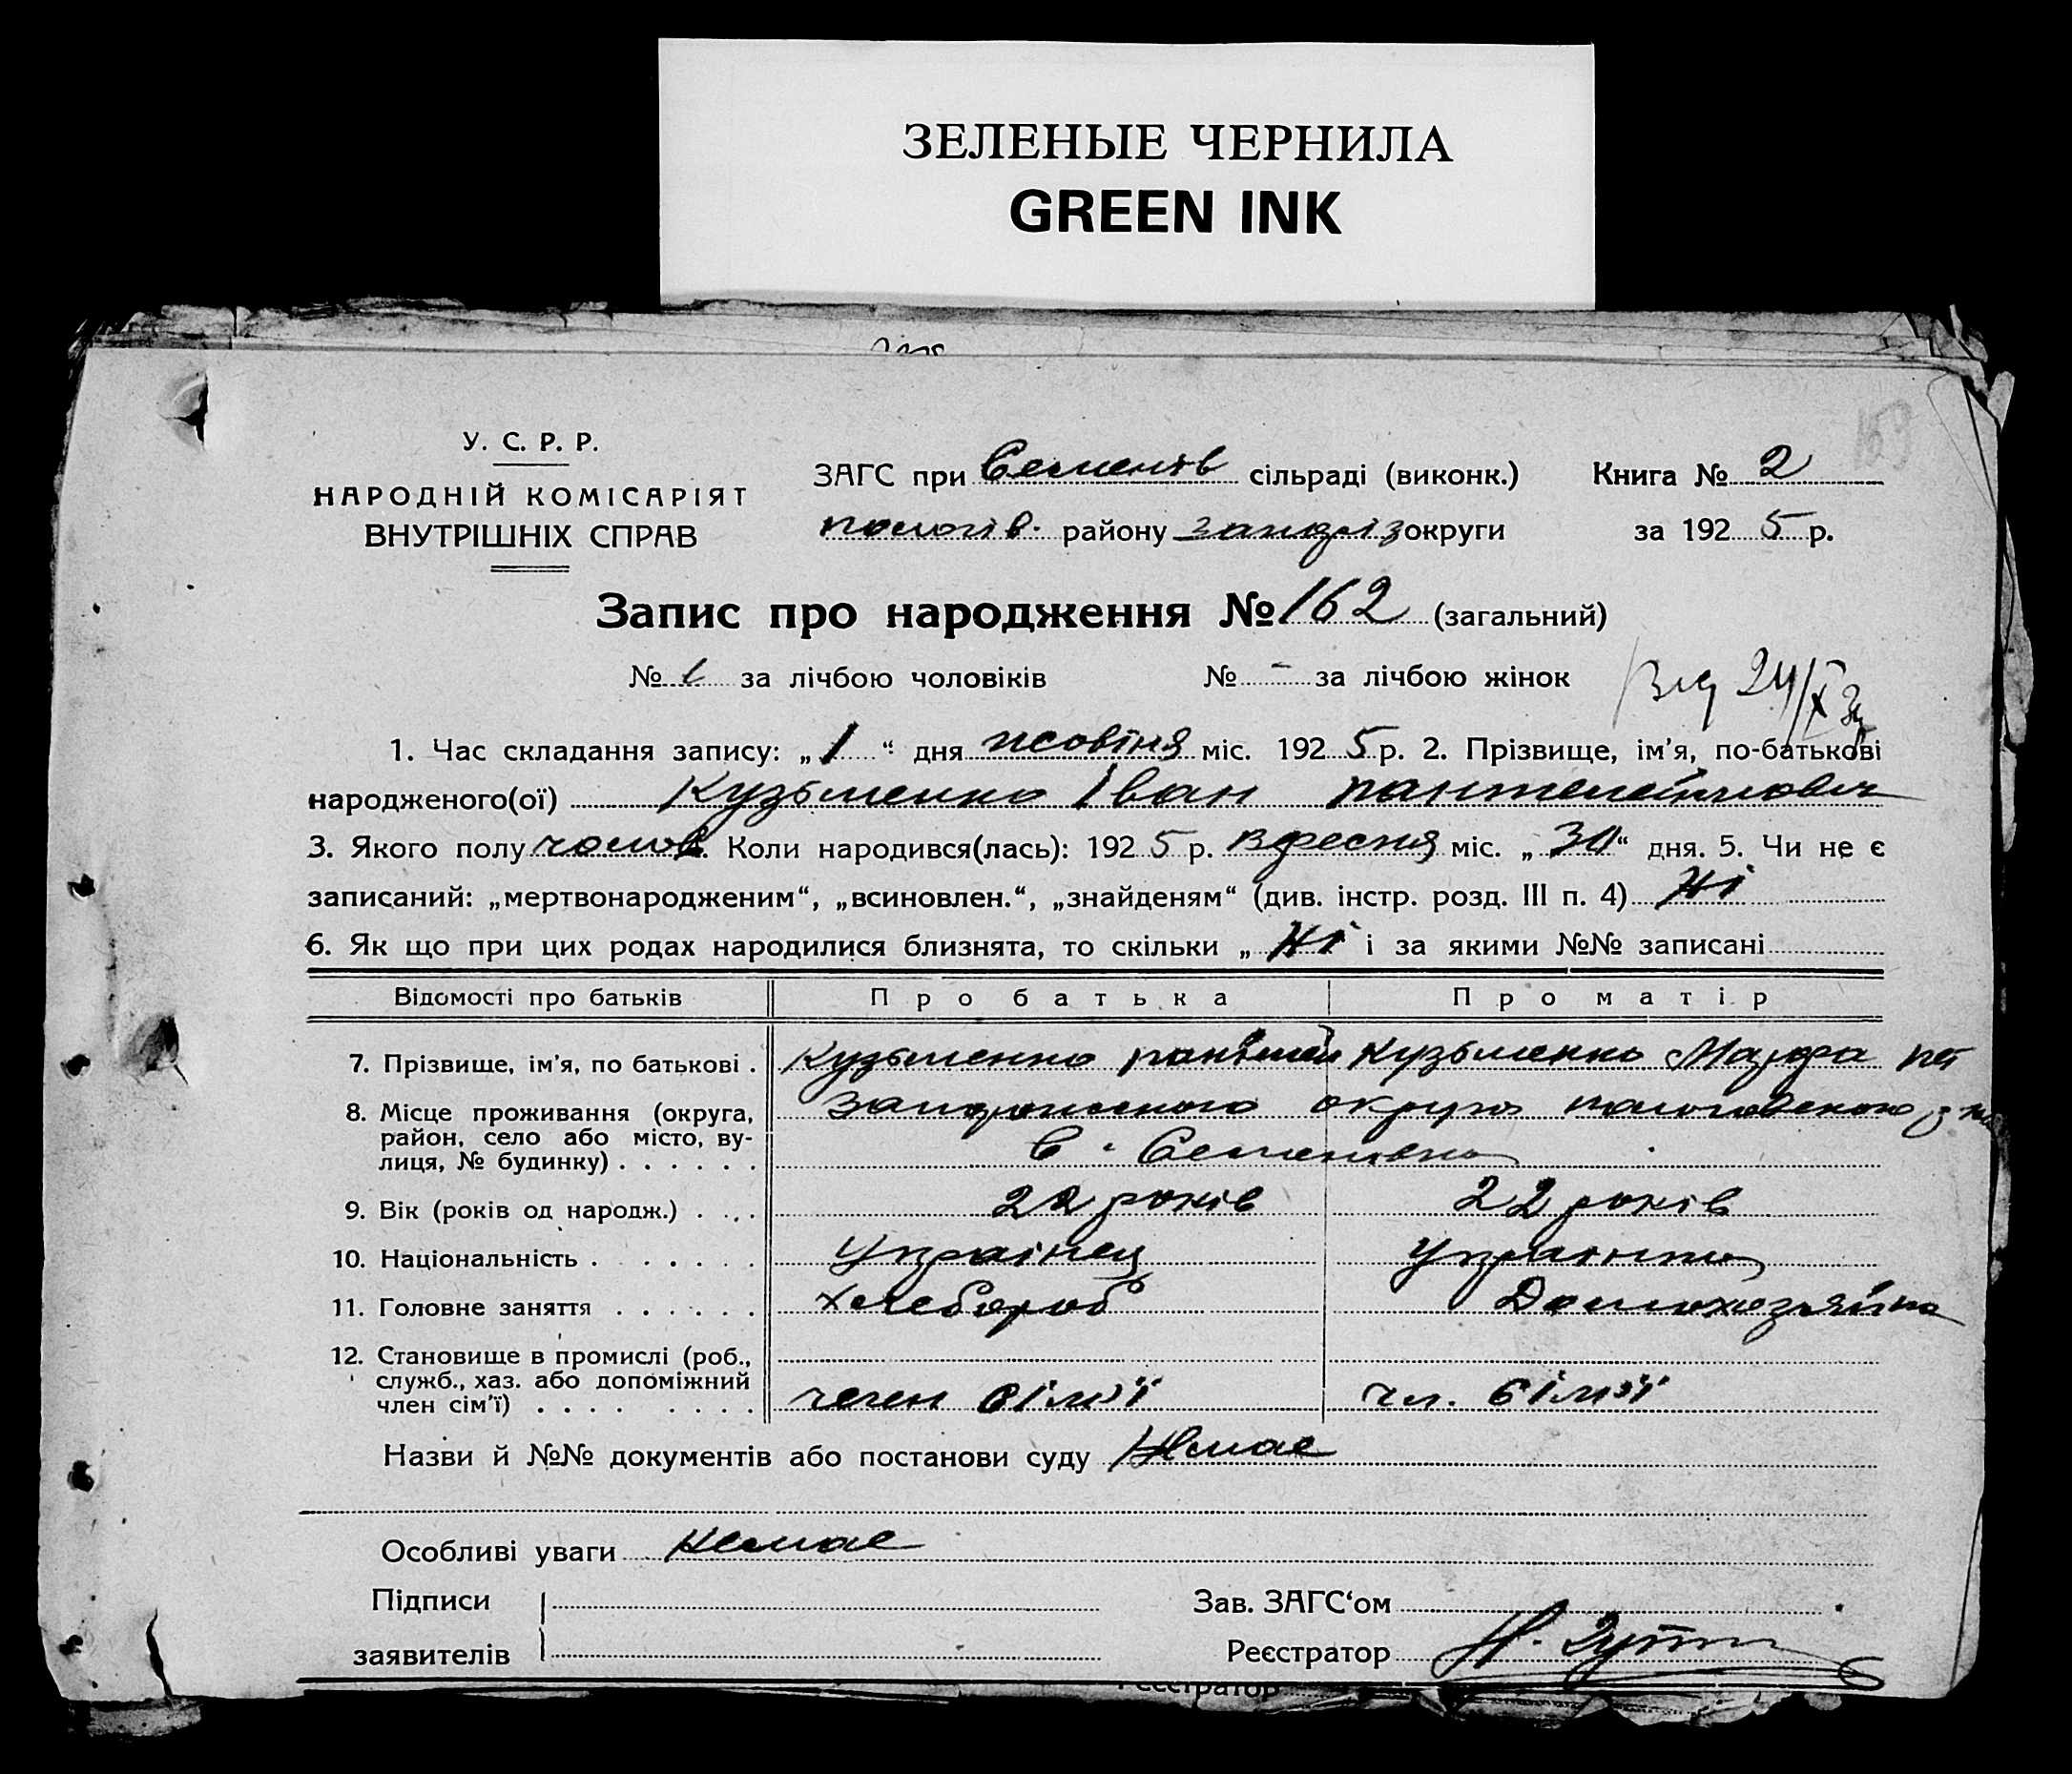 ЗЕЛЕНЫЕ ЧЕРНИЛА
GREEN INK
153
У. С. Р. Р.
НАРОДНІЙ КОМІСАРІЯТ
ВНУТРІШНІХ СПРАВ
ЗАГС при Семенів сільраді (виконк.)
пологів. району запоріз округи
Книга № 2
за 1925 р.
Запис про народження № 162 (загальний)
№ 1 за лічбою чоловіків № - за лічбою жінок
1. Час складання запису: „1“ дня жовтня міс. 1925 р. 2. Прізвище, ім'я, по-батькові
народженого(ої) Кузьменко Іван пантелеймович
3. Якого полу чолов. Коли народився(лась): 1925 р. вересня міс. „30“ дня. 5. Чи не є
записаний: „мертвонародженим“, „всиновлен.“, „знайденям“ (див. інстр. розд. III п. 4) Ні
6. Як що при цих родах народилися близнята, то скільки „ Ні і за якими №№ записані
Відомості про батьків Про батька Про матір
7. Прізвище, ім'я, по батькові . Кузьменко Кузьменко Марфа
8. Місце проживання (округа,
район, село або місто, ву-
лиця, № будинку) . . . . . .
Запорожського округа пологовского
с. Семенівка
9. Вік (років од народж.) . . . 22 років 22 років
10. Національність . . . . . . Українец Українка
11. Головне заняття . . . . . . хлебороб Домохозяйка
12. Становище в промислі (роб.,
служб., хаз. або допоміжний
член сім'ї) . . . . . . . . член сім'ї чл. сім'ї
Назви й №№ документів або постанови суду Немає
Особливі уваги немає
Підписи
заявителів
Зав. ЗАГС‘ом
Реєстратор
Реєстратор